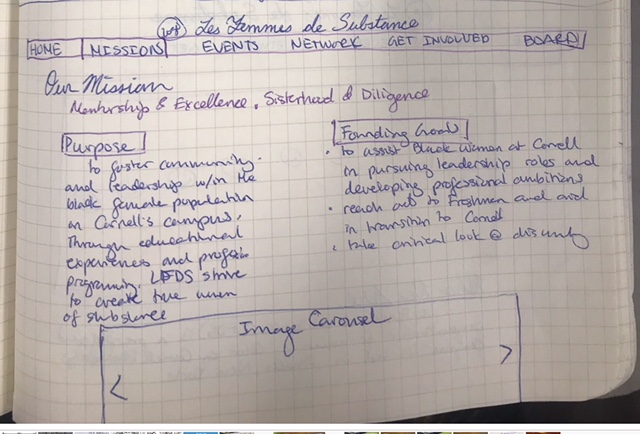 Les Femmes de Substance
HOME MISSIONS EVENTS NETWORK GET INVOLVED BOARD
Our Mission
Mentorship & Excellence, Sisterhood & Diligence
Purpose
to foster community
and leadership w/in the
black female population
on Cornell's campus,
Through educational
experiences and
programming. LFDS strive
to create true women
of substance
Founding Goals
• to assist Black women at Cornell
in pursuing leadership roles and
developing professional ambitions
• reach out to Freshmen and aid
in transition to Cornell
• take critical look @
Image Carousel
< >